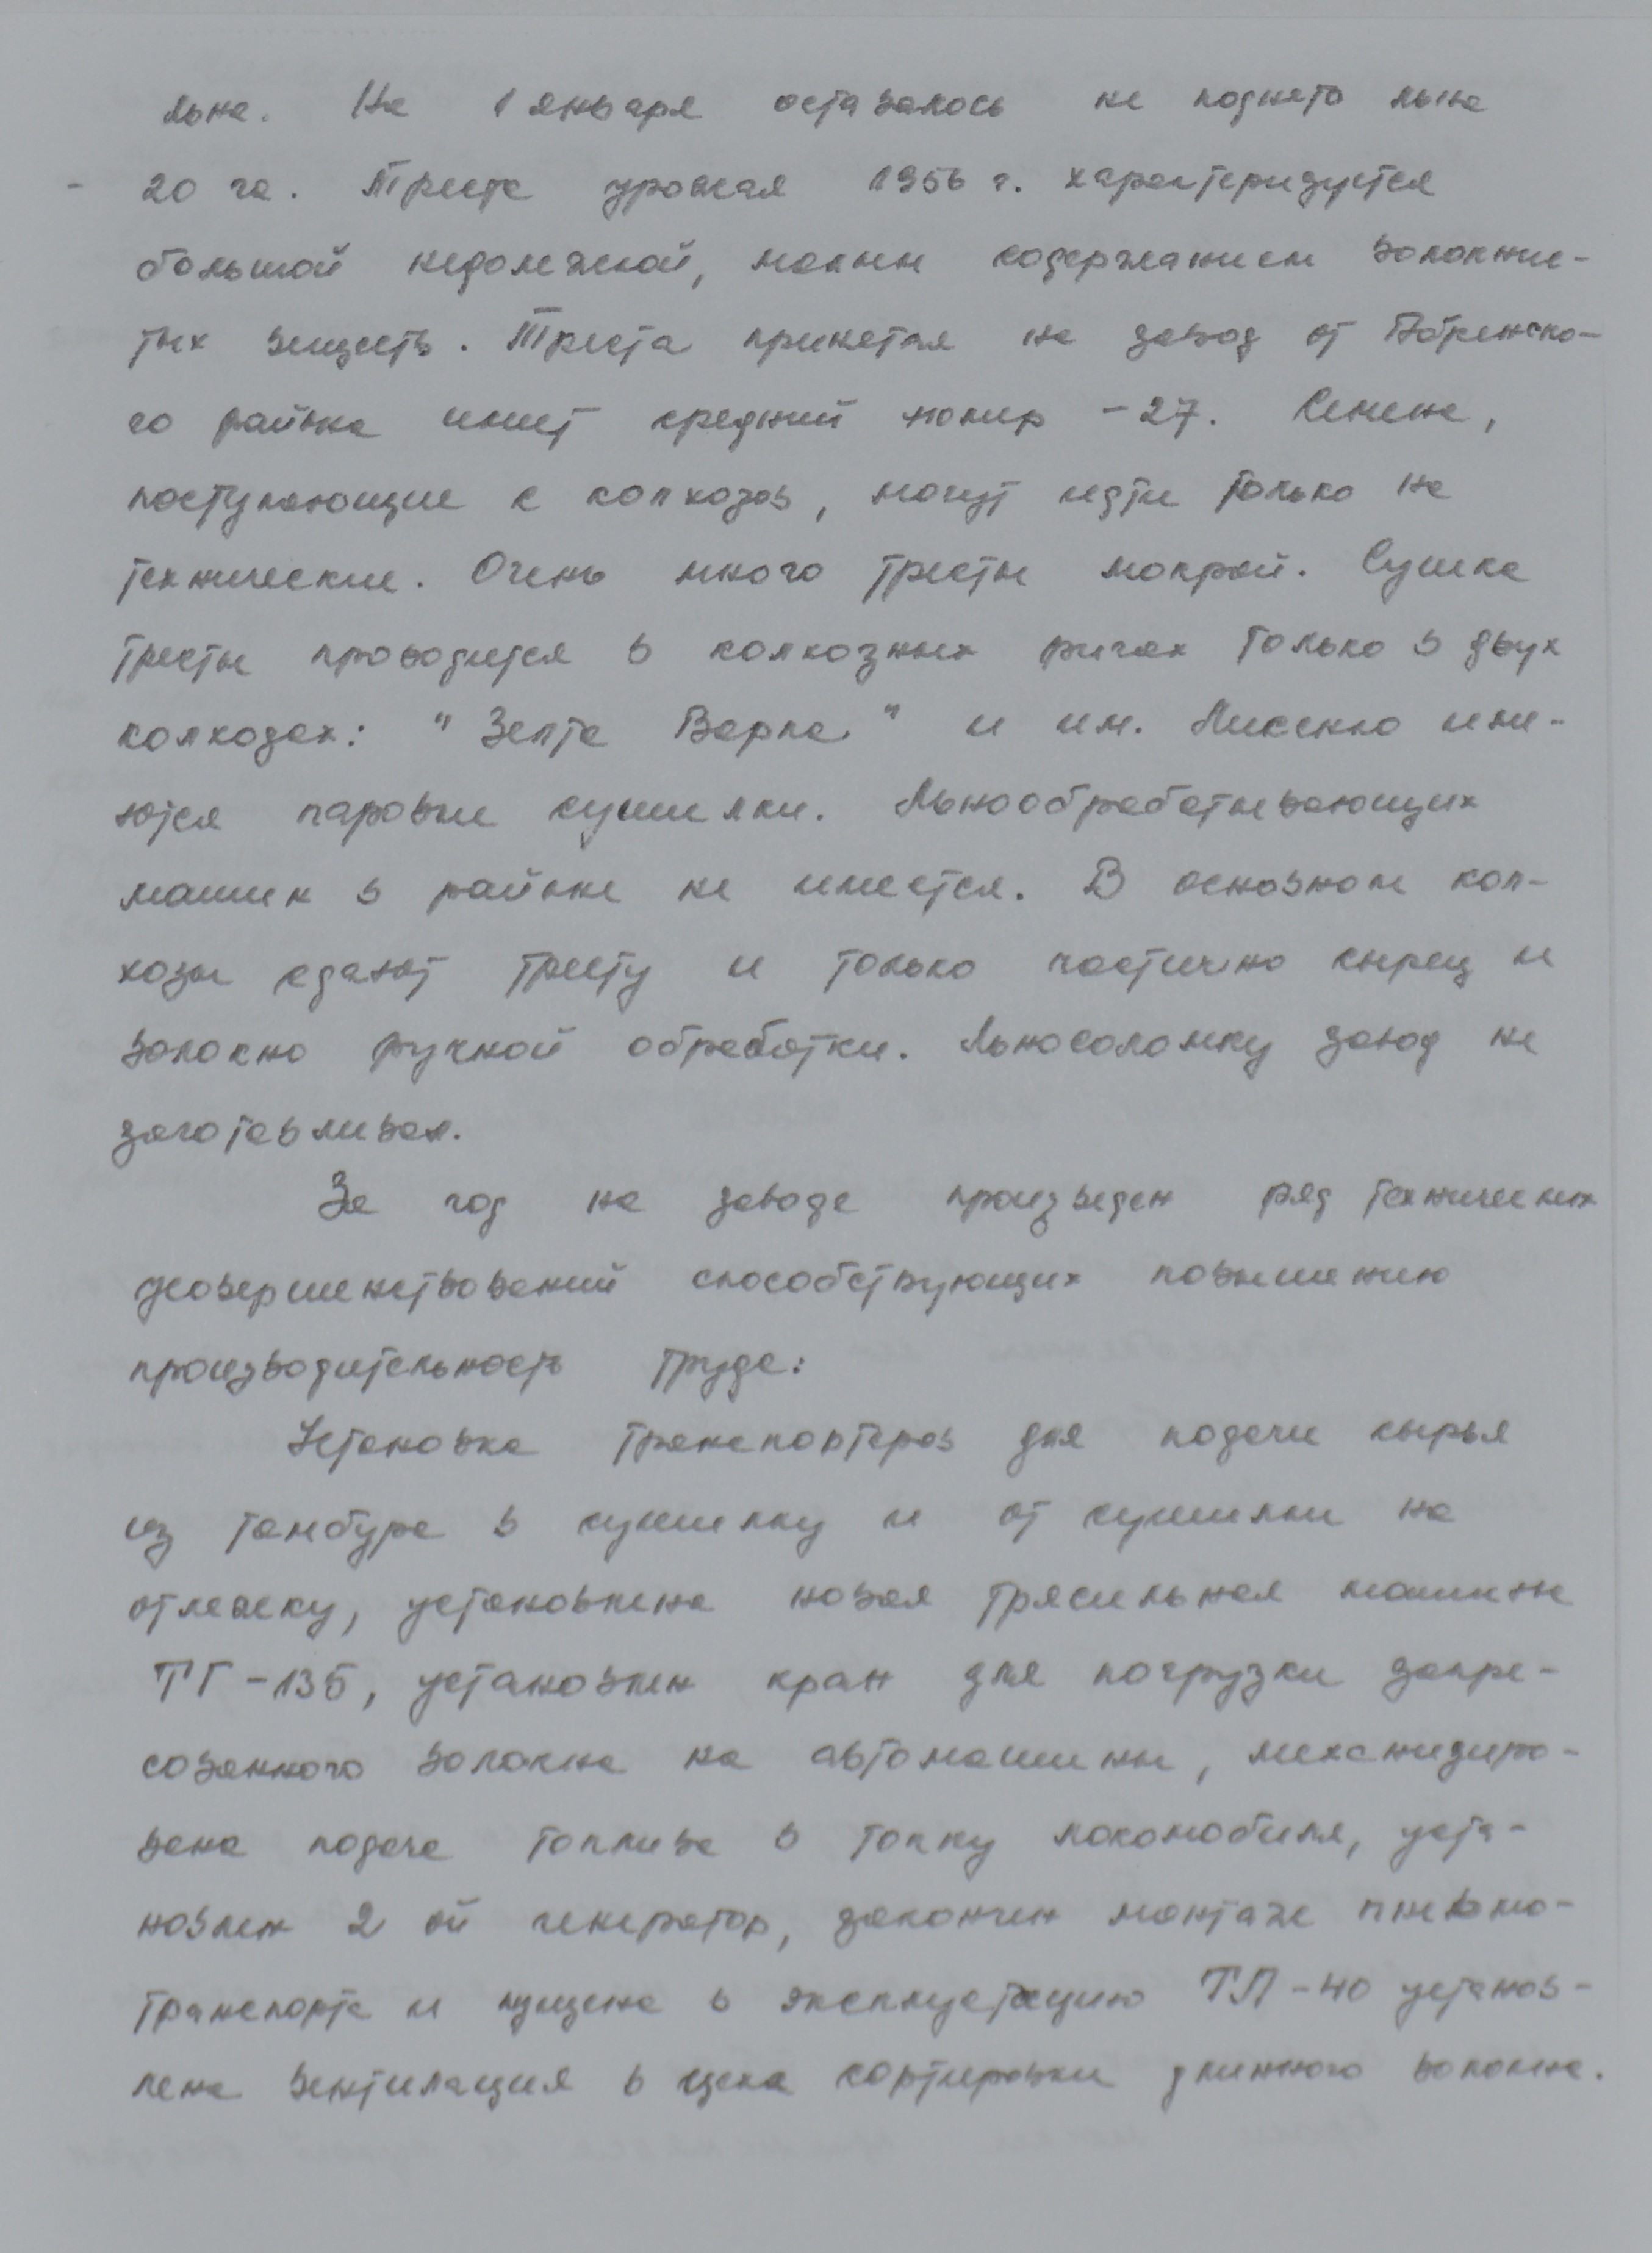 льна. На 1 января оставалось не поднято льна
20 га. Треста урожая 1956 г. характеризуется
большой недолежкой, малым содержанием волокнис-
тых веществ. Треста принятая на завод от Абренско-
го района имеет средний номер - 27. Семена,
поступающие с колхозов, могут идти только на
технические. Очень много тресты мокрой. Сушка
тресты проводится в колхозных ригах только в двух
колхозах: "Зелта Варпа" и им. Лисенко име-
ются паровые сушилки. Льнообрабатывающих
машин в районе не имеется. В основном кол-
хозы сдают тресту и только частично сырец и
волокно ручной обработки. Льносоломку завод не
заготавливал.
За год на заводе произведен ряд технических
усовершенствований способствующих повышению
производительность труда:
Установка транспортеров для подачи сырья
из тамбура в сушилку и от сушилки на
отлежку, установлена новая трясильная машина
ТГ-135, установлен кран для погрузки запре-
сованного волокна на автомашины, механизиро-
вана подача топлива в топку локомобиля, уста-
новлен 2 ой генератор, закончен монтаж пневмо-
транспорта и пущена в эксплуатацию ТЛ-40 установ-
лена вентилация в цеха сортировки длинного волокна.